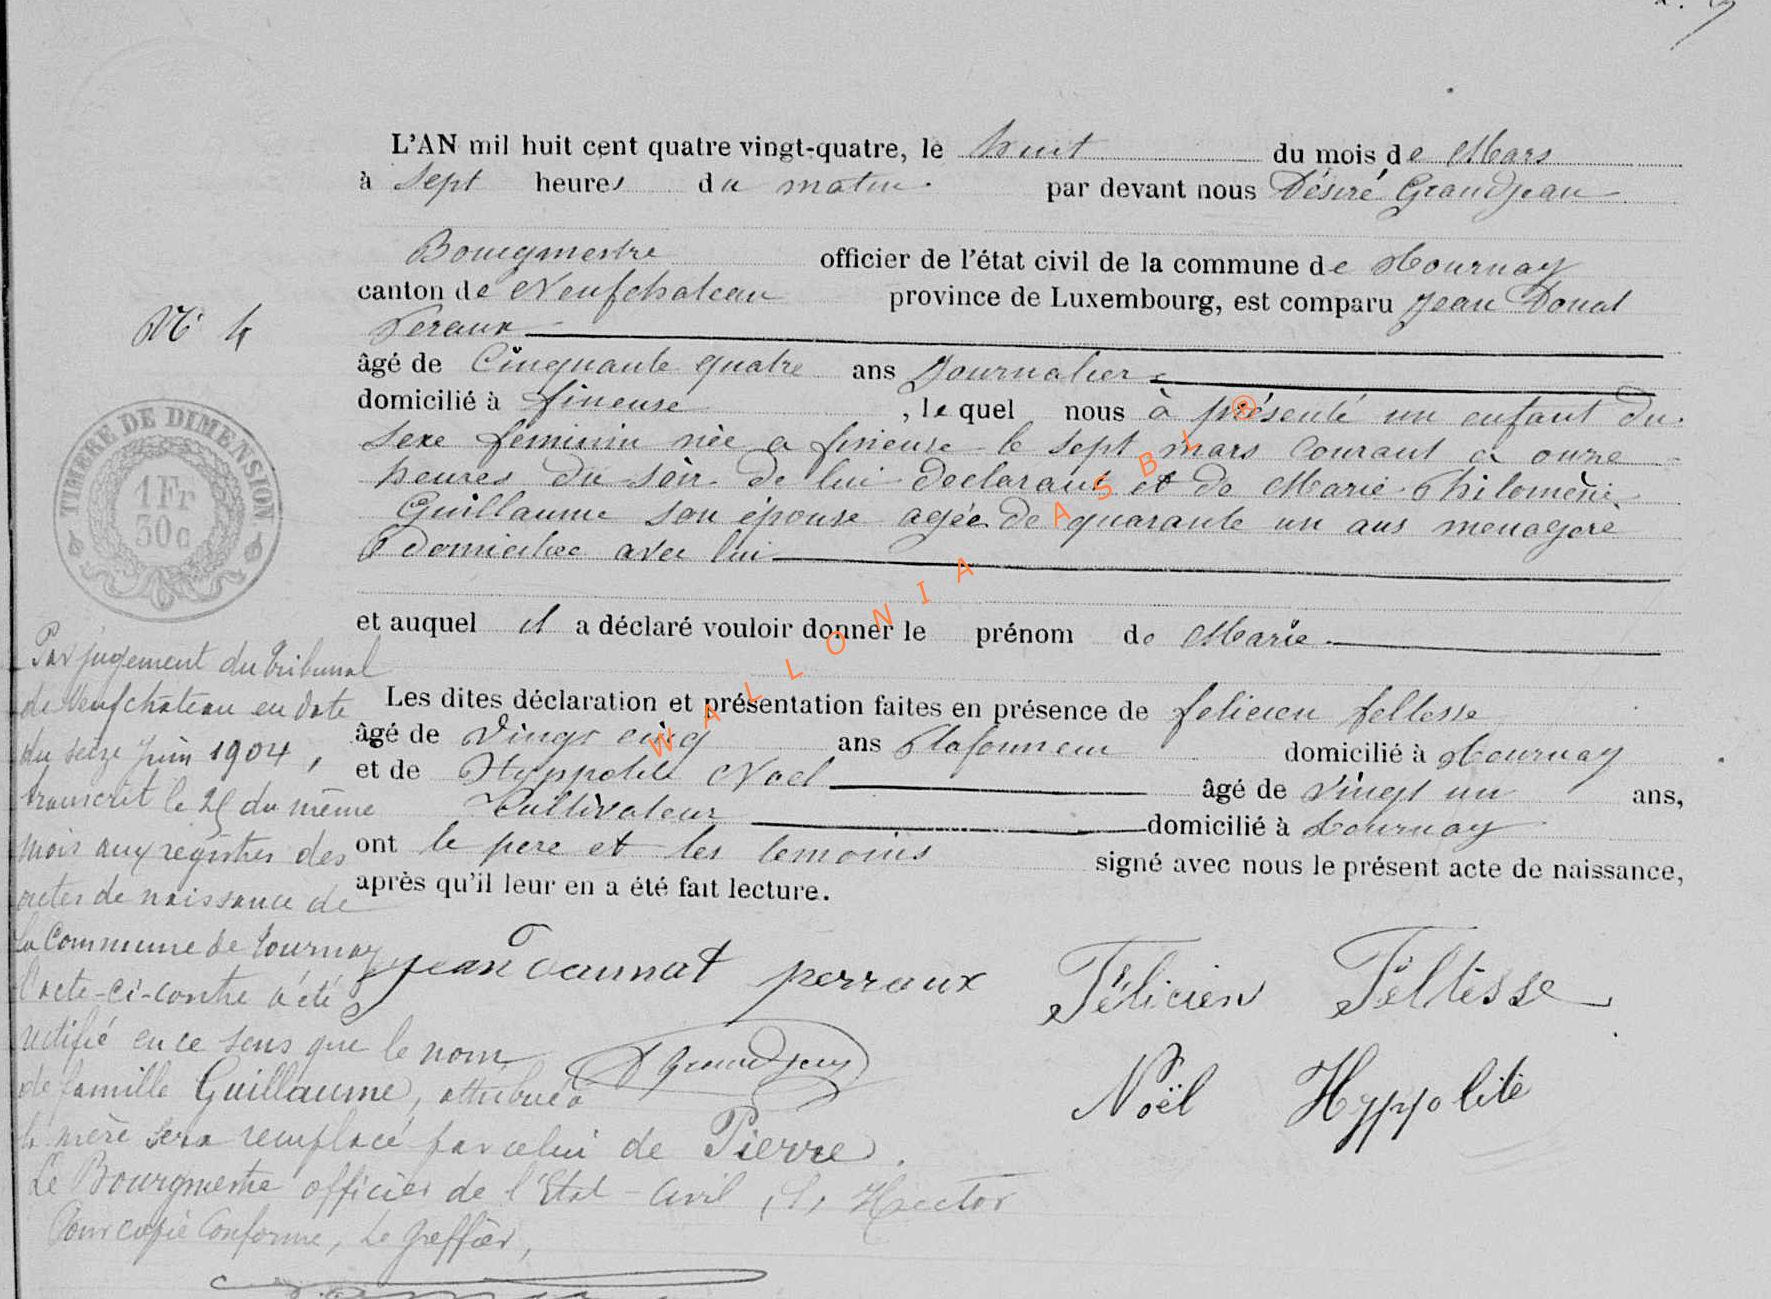 L'AN mil huit cent quatre vingt-quatre, le huit du mois de Mars
à sept heures du matin. par devant nous Désiré Grandjean
Bourgmestre officier de l'état civil de la commune de Tournay
canton de Neufchateau province de Luxembourg, est comparu Jean Donat
Peraux
N° 4
âgé de Cinquante quatre ans Journalier
domicilié à fineuse , lequel nous à présenté un enfant du
sexe féminin née a fineuse le sept mars courant à onze
heures du soir de lui declarant et de Marie Philomène
Guillaume son épouse agée de quarante un ans menagere
domiciliee avec lui
TIMBRE DE DIMENSION
1 Fr
50 c
et auquel il a déclaré vouloir donner le prénom de Marie
Les dites déclaration et présentation faites en présence de felicien feltesse
âgé de Vingt cinq ans Plafonneur domicilié à Tournay
et de Hyppolite Noel âgé de Vingt un ans,
Cultivateur domicilié à Tournay
ont le pere et les temoins signé avec nous le présent acte de naissance,
après qu'il leur en a été fait lecture.
jean Daunat perraux
Félicien Feltesse
DGrandjean
Noël Hyppolite
Par jugement du Tribunal
de Neufchâteau en date
du seize Juin 1904,
transcrit le 25 du même
mois aux registres des
actes de naissance de
la Commune de Tournay
l'acte-ci-contre a été
rectifié en ce sens que le nom
de famille Guillaume, attribué à
la mère sera remplacé par celui de Pierre.
Le Bourgmestre officier de l'Etat-Civil, (s) Hector
Pour copie conforme, Le Greffier,
WALLONIA ASBL ®